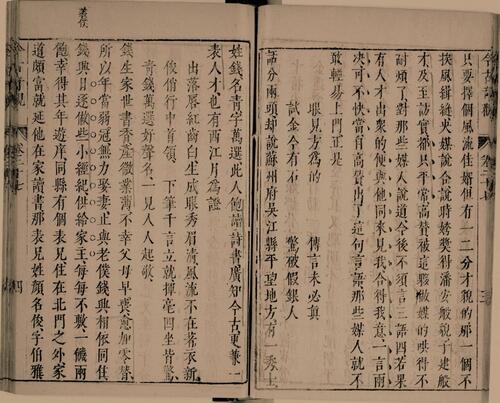 只要擇個風流佳壻但有一二分才貌的那一個不
挨風緝縫央媒說合說時誇獎得潘安般貌子建般
才及至訪實都只平常高贊被這夥做媒的哄得不
耐煩了對那些媒人說道今後不須言三語四若果
有人才出衆的便與他同來見我合得我意一言兩
決可不快當自高贊出了這句言語那些媒人就不
敢輕易上門正是
眼見方爲的　傳言未必真
試金今有石　驚破假銀人
話分兩頭却說蘇州府吳江縣平望地方有一秀士
姓錢名青字萬選此人飽讀詩書廣知今古更兼一
表人才也有西江月爲證
出落唇紅齒白生成眼秀眉清風流不在著衣新
俊俏行中首領　下筆千言立就揮毫四坐皆驚
青錢萬選好聲名一見人人起敬
錢生家世書香產微業薄不幸父母早喪愈加零替
所以年當弱冠無力娶妻止與老僕錢興相依同住
錢興日逐做些小經紀供給家主每每不敷一饑兩
飽幸得其年遊庠同縣有個表兄住在北門之外家
道頗富就延他在家讀書那表兄姓顏名俊字伯雅